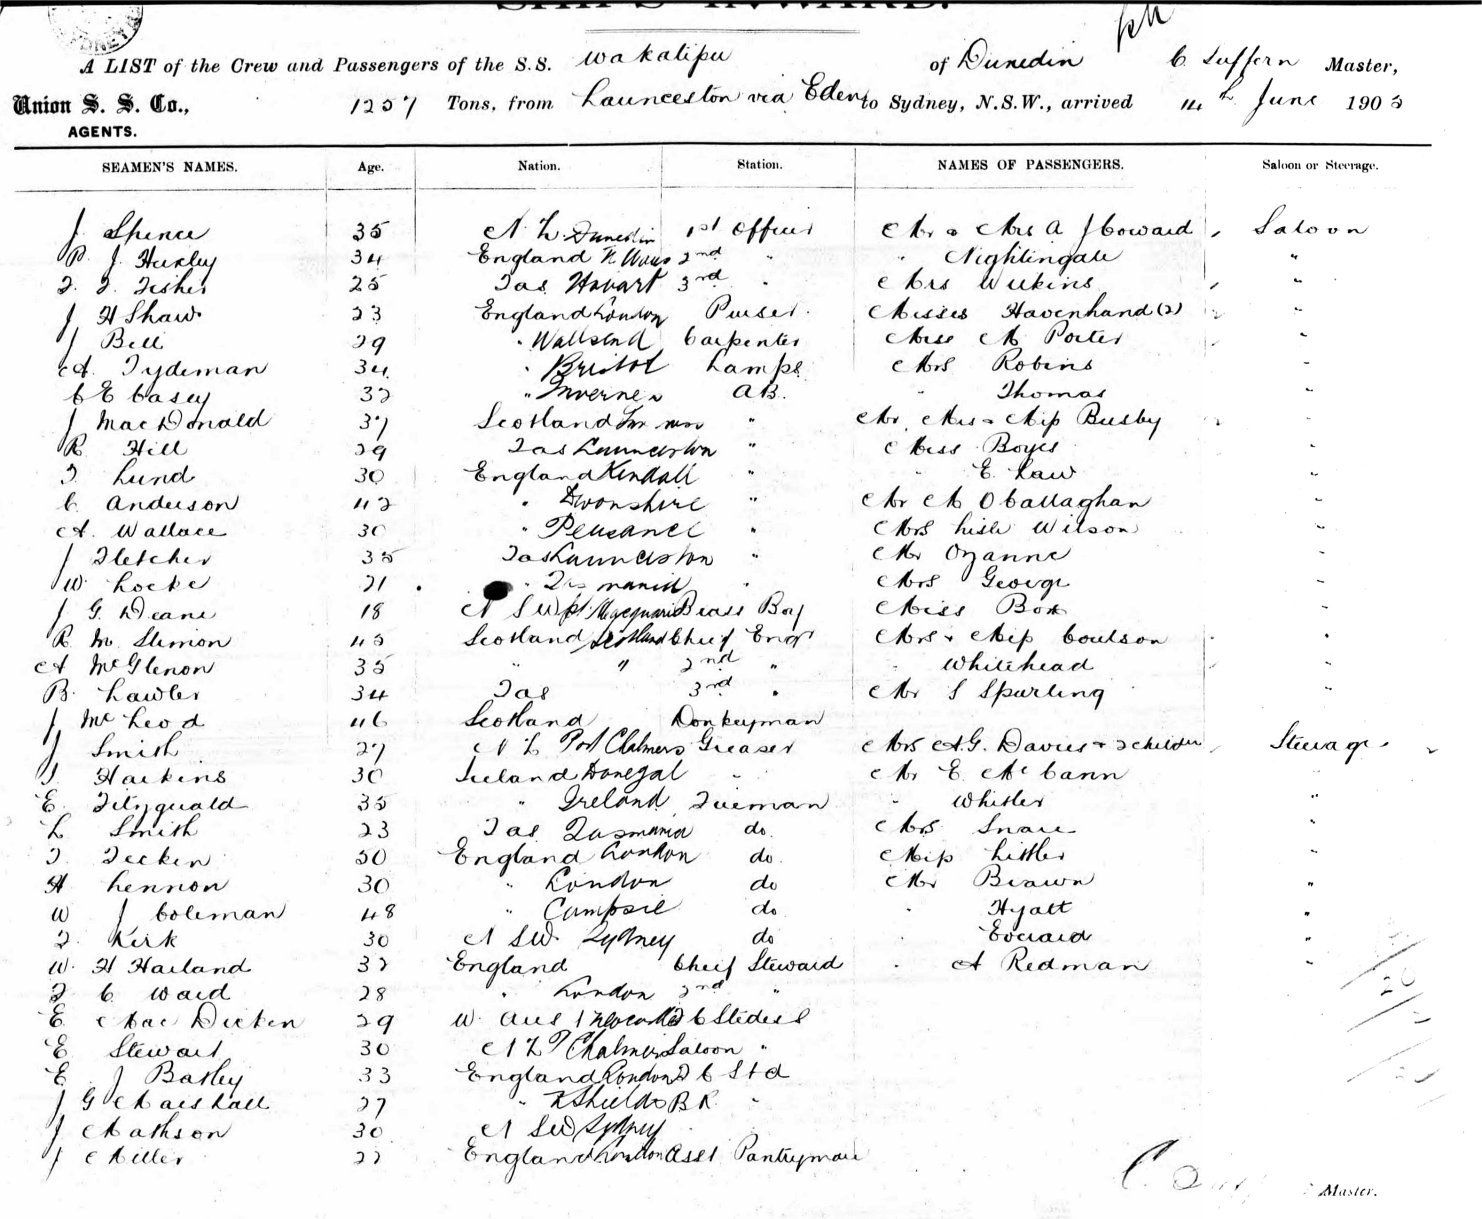 SHIPS INWARD.
A LIST of the Crew and Passengers of the S.S. Wakatipu of Dunedin C Suffern Master,
Union S. S. Co., 1257 Tons, from Launceston via Eden to Sydney, N.S.W., arrived 14th June 1905
AGENTS.
SEAMEN'S NAMES. Age. Nation. Station. NAMES OF PASSENGERS. Saloon or Steerage.
J Spence 35 N Z. Dunedin 1st Officer Mr & Mrs A J Coward Saloon
P. J. Huxley 34 England 2nd " " Nightingale "
Fisher 25 Tas Hobart 3rd " Mrs Wilkins "
J H Shaw 23 England London Purser Misses Havenhand (2) "
J Bell 29 " Wallsend Carpenter Miss M Porter "
A. Tydeman 34 " Bristol Lamps Mrs Robins "
C E Casey 32 " AB. " Thomas "
J MacDonald 37 Scotland " Mr, Mrs & Miss Busby "
R Hill 29 Tas Launceston " Miss Boyes "
T Lund 30 England Kendall " " E. Law "
C. Anderson 42 " Devonshire " Mr M O'Callaghan "
A. Wallace 30 " Pensance " Mrs Lisle Wilson "
J Fletcher 35 Tas Launceston " Mr Ozanne "
W. Locke 21 " Tasmania " Mrs George "
J. G. Deane 18 N S W Pt Macquarie Brass Boy Miss Box "
R. M. Slimon 45 Scotland Scotland Chief Engr Mrs & Miss Coulson "
A McGlenon 35 " " 2nd " " Whitehead "
B. Lawler 34 Tas 3rd " Mr S Spurling "
J McLeod 46 Scotland Donkeyman
J Smith 27 N Z Port Chalmers Greaser Mrs A.G. Davies & 2 childn Steerage
Harkins 30 Ireland Donegal " Mr E. McCann "
E. Fitzgerald 35 " Ireland Fireman " Whistler "
L Smith 23 Tas Tasmania do. Mrs Snare "
50 England London do. Miss Littler
H Lennon 30 " London do Mr Brown "
W J Coleman 48 " Campsie do " Hyatt "
Kirk 30 N S W. Sydney do " Everard "
W. H Harland 32 England Chief Steward " A Redman "
C Ward 28 " London 2nd "
E MacDicken 29 W. Aus
E. Stewart 30 N Z P Chalmers Saloon "
E J Batley 33 England London Std
J G Marshall 27 " N Shields B R. "
J Mathson 30 N S W Sydney
J Miller 22 England London Asst Pantryman
Master.